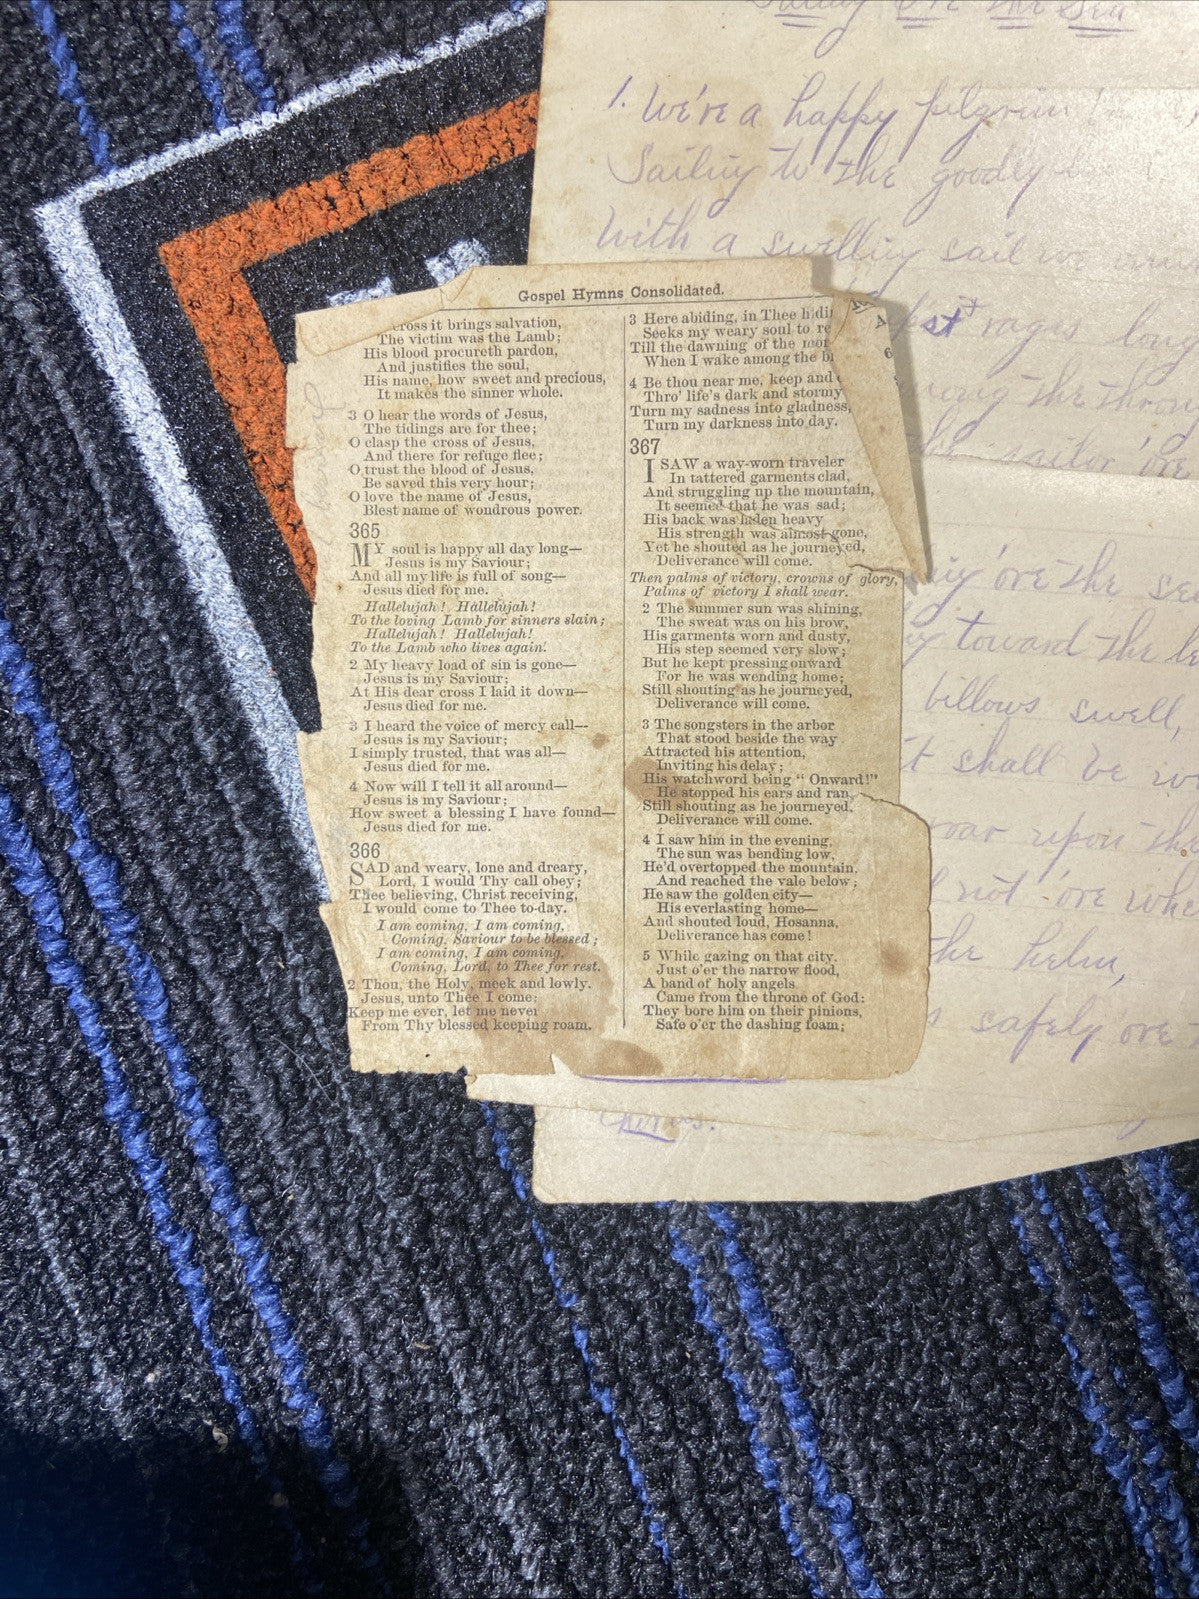 Sailing O're the Sea
1. We're a happy pilgrim
Sailing to the goodly
With a swelling sail we
rages long
the
the sailor 'ore
Gospel Hymns Consolidated.
cross it brings salvation,
The victim was the Lamb;
His blood procureth pardon,
And justifies the soul,
His name, how sweet and precious,
It makes the sinner whole.
3 O hear the words of Jesus,
The tidings are for thee;
O clasp the cross of Jesus,
And there for refuge flee;
O trust the blood of Jesus,
Be saved this very hour;
O love the name of Jesus,
Blest name of wondrous power.
365
MY soul is happy all day long—
Jesus is my Saviour;
And all my life is full of song—
Jesus died for me.
Hallelujah! Hallelujah!
To the loving Lamb for sinners slain;
Hallelujah! Hallelujah!
To the Lamb who lives again.
2 My heavy load of sin is gone—
Jesus is my Saviour;
At His dear cross I laid it down—
Jesus died for me.
3 I heard the voice of mercy call—
Jesus is my Saviour;
I simply trusted, that was all—
Jesus died for me.
4 Now will I tell it all around—
Jesus is my Saviour;
How sweet a blessing I have found—
Jesus died for me.
366
SAD and weary, lone and dreary,
Lord, I would Thy call obey;
Thee believing, Christ receiving,
I would come to Thee to-day.
I am coming, I am coming,
Coming, Saviour to be blessed;
I am coming, I am coming,
Coming, Lord, to Thee for rest.
2 Thou, the Holy, meek and lowly.
Jesus, unto Thee I come;
Keep me ever, let me never
From Thy blessed keeping roam.
3 Here abiding, in Thee
Seeks my weary soul to
Till the dawning of the
When I wake among the
4 Be thou near me, keep and
Thro' life's dark and stormy
Turn my sadness into gladness,
Turn my darkness into day.
367
I SAW a way-worn traveler
In tattered garments clad,
And struggling up the mountain,
It seemed that he was sad;
His back was laden heavy
His strength was almost gone,
Yet he shouted as he journeyed,
Deliverance will come.
Then palms of victory, crowns of glory,
Palms of victory I shall wear.
2 The summer sun was shining,
The sweat was on his brow,
His garments worn and dusty,
His step seemed very slow;
But he kept pressing onward
For he was wending home;
Still shouting as he journeyed,
Deliverance will come.
3 The songsters in the arbor
That stood beside the way
Attracted his attention,
Inviting his delay;
His watchword being "Onward!"
He stopped his ears and ran,
Still shouting as he journeyed,
Deliverance will come.
4 I saw him in the evening,
The sun was bending low,
He'd overtopped the mountain,
And reached the vale below;
He saw the golden city—
His everlasting home—
And shouted loud, Hosanna,
Deliverance has come!
5 While gazing on that city,
Just o'er the narrow flood,
A band of holy angels
Came from the throne of God:
They bore him on their pinions,
Safe o'er the dashing foam;
'ore the
toward the
billows swell,
shall be
roar upon the
not 'ore
the helm,
safely 'ore
Chorus.